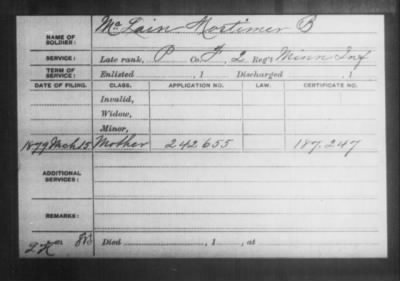 NAME OF SOLDIER: McLain Mortimer B
SERVICE: Late rank, P Co. F, 2 Reg't Minn Inf
TERM OF SERVICE: Enlisted , 1 Discharged , 1
DATE OF FILING. CLASS. APPLICATION NO. LAW. CERTIFICATE NO.
Invalid,
Widow,
Minor,
1879 Mch 15 Mother 242655 187.247
ADDITIONAL SERVICES:
REMARKS:
Died , 1 , at